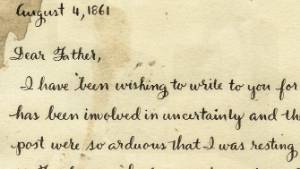 August 4, 1861
Dear Father,
I have been wishing to write to you for
has been involved in uncertainty and th
post were so arduous that I was resting